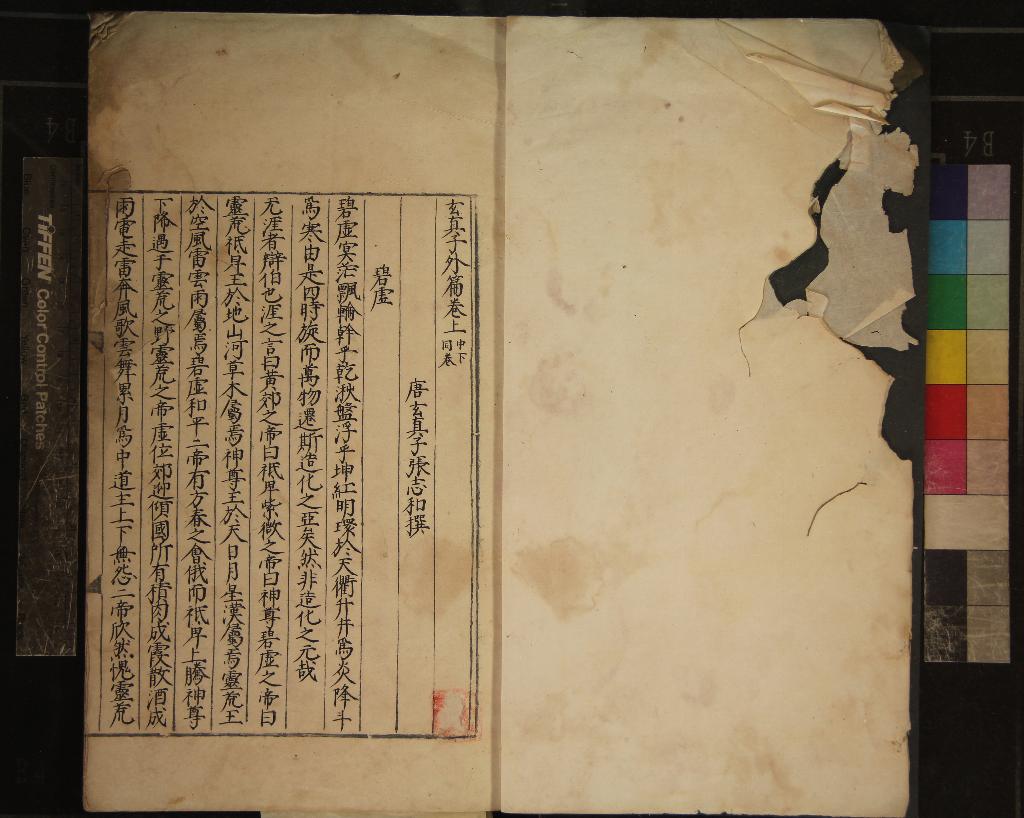 玄真子外篇卷上 中下同卷
唐玄真子張志和撰
碧虛
碧虛冥茫飄輪斡乎乾泱盤浮乎坤紅明環於天衢升井爲炎降斗
爲寒由是四時旋而萬物遷斯造化之亞矣然非造化之元哉
无涯者辯伯也涯之言曰黃郊之帝曰祇卑紫微之帝曰神尊碧虛之帝曰
靈荒祇卑王於地山河草木屬焉神尊王於天日月星漢屬焉靈荒王
於空風雷雲雨屬焉碧虛和平二帝有方春之會俄而祇卑上騰神尊
下降遇于靈荒之野靈荒之帝虛位郊迎傾國所有積肉成霞散酒成
雨電走雷奔風歌雲舞累月爲中道主上下無怨二帝欣然愧靈荒
TIFFEN Color Control Patches
B4
B4